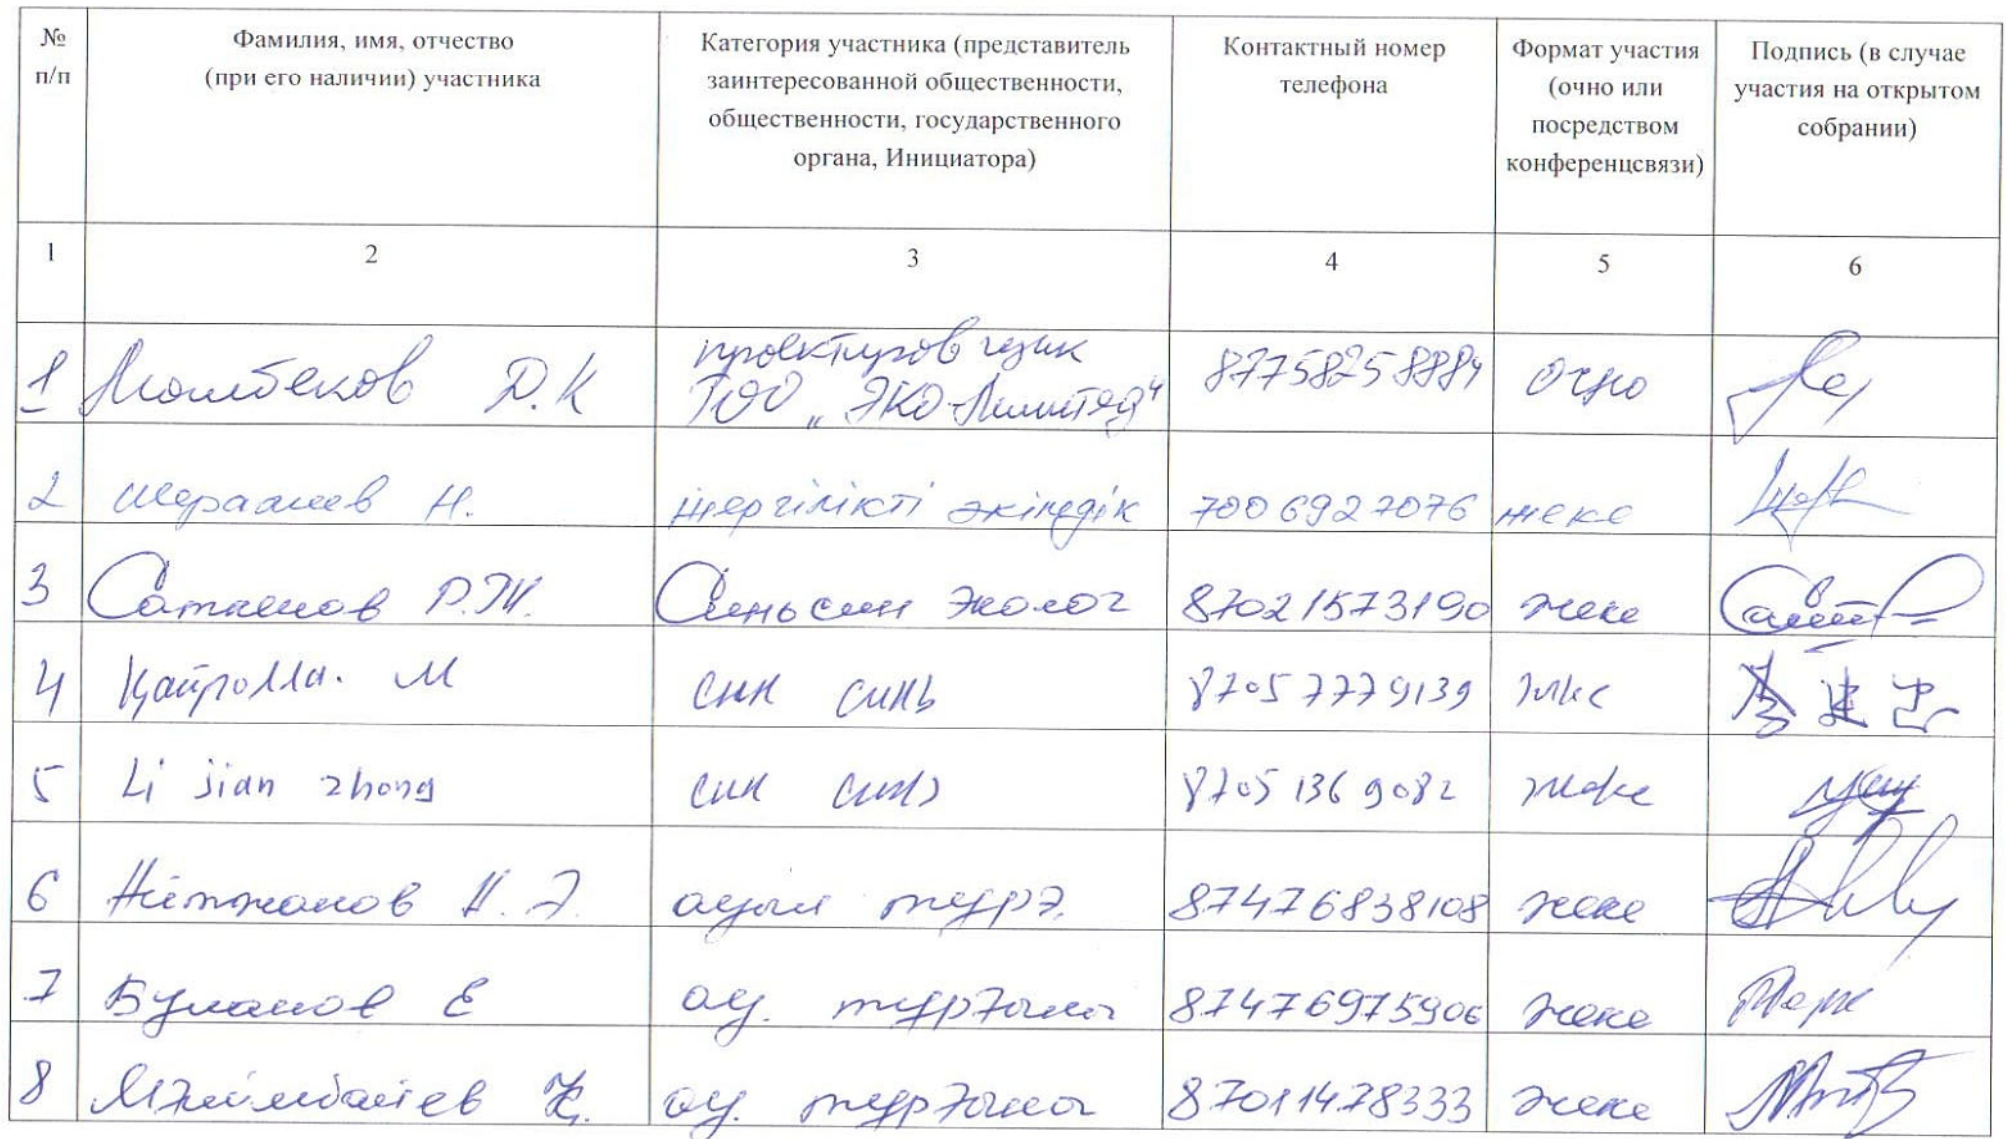 № п/п
Фамилия, имя, отчество
(при его наличии) участника
Категория участника (представитель
заинтересованной общественности,
общественности, государственного
органа, Инициатора)
Контактный номер
телефона
Формат участия
(очно или
посредством
конференцсвязи)
Подпись (в случае
участия на открытом
собрании)
1 2 3 4 5 6
проектировщик
1 Молбеков Д.К ТОО „ЭКО-Лимитед“ 87758258884 очно
2 Н. жергілікті әкімдік 7006927076 жеке
3 Саткенов Р.Ж. Синьсин эколог 87021573190 жеке
4 Қайролла. М син синь 87057779139 жеке
5 Li jian zhong син синь 87051369082 жеке
6 Нітжанов Н. Э. ауыл тұрғ. 87476838108 жеке
7 Буланов Е ау. тұрғыны 87476975906 жеке
8 Қ. ау. тұрғыны 87011478333 жеке